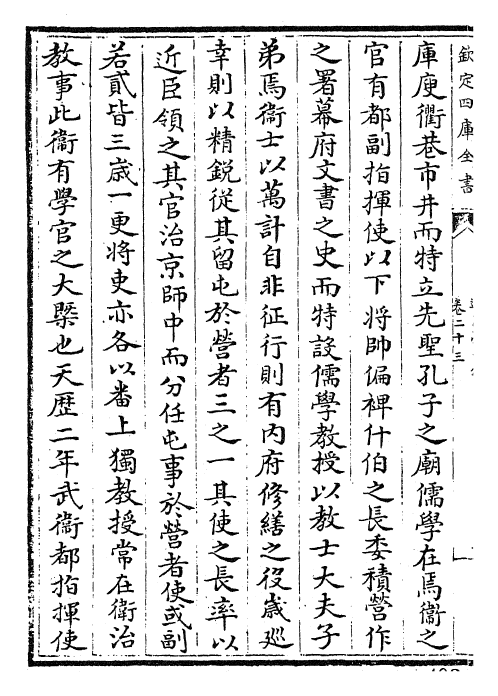 欽定四庫全書
卷二十三
庫庾衢巷市井而特立先聖孔子之廟儒學在焉衞之
官有都副指揮使以下將帥偏裨什伯之長委積營作
之署幕府文書之史而特設儒學教授以教士大夫子
弟焉衞士以萬計自非征行則有内府修繕之役歲廵
幸則以精鋭從其留屯於營者三之一其使之長率以
近臣領之其官治京師中而分任屯事於營者使或副
若貳皆三歲一更將吏亦各以番上獨教授常在衛治
教事此衞有學官之大槩也天歴二年武衞都指揮使